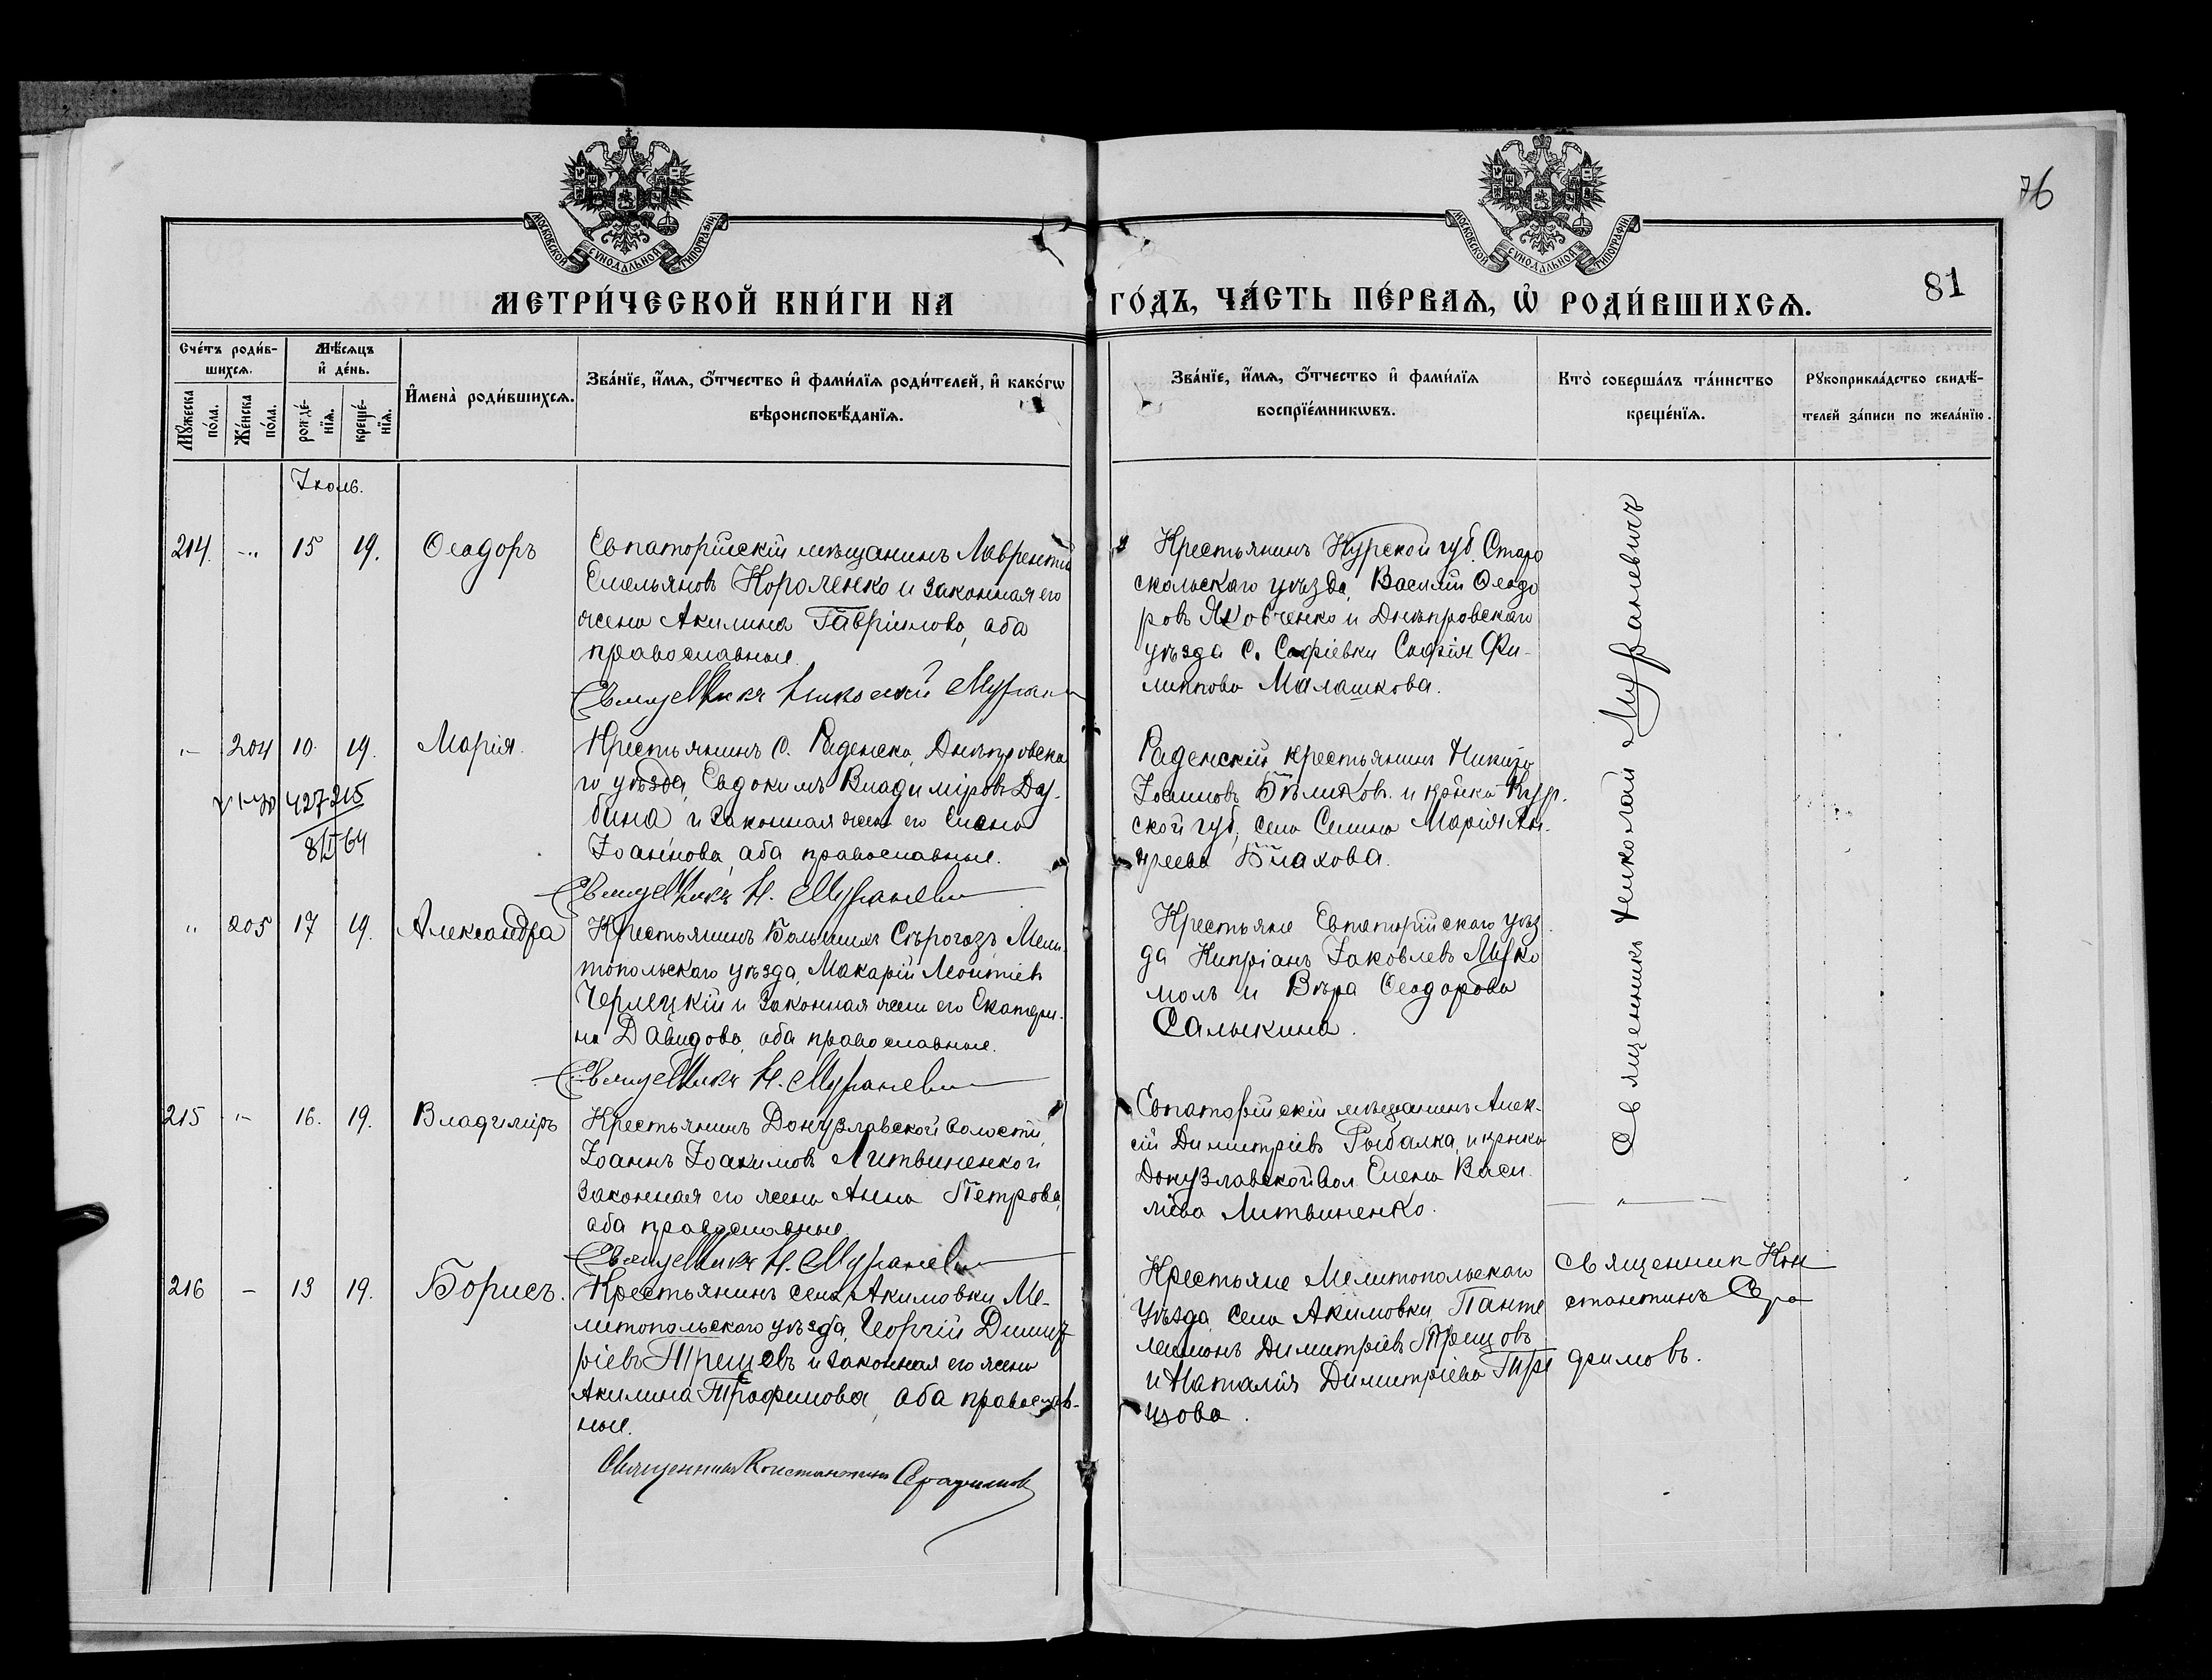 76
МОСКОВСКОЙ СѴНОДАЛЬНОЙ ТИПОГРАФІИ
МОСКОВСКОЙ СѴНОДАЛЬНОЙ ТИПОГРАФІИ
МЕТРИ́ЧЕСКОЙ КНИ́ГИ НА
ГО́ДЪ, ЧА́СТЬ ПЕ́РВАѦ, Ѡ҆ РОДИ́ВШИХСѦ.
81
Сче́тъ роди́в-
шихсѧ.
Мꙋ́жеска по́ла.
Же́нска по́ла.
Мѣ́сѧцъ
и҆ де́нь.
рожде́-
нїѧ.
креще́-
нїѧ.
И҆мена̀ роди́вшихсѧ.
Зва́нїе, и҆́мѧ, ѻ҆́тчество и҆ фами́лїѧ роди́телей, и҆ како́гѡ
вѣроисповѣ́данїѧ.
Зва́нїе, и҆́мѧ, ѻ҆́тчество и҆ фами́лїѧ
воспрїе́мникѡвъ.
Кто̀ соверша́лъ та́инство
креще́нїѧ.
Рꙋкоприкла́дство свидѣ́-
телей за́писи по жела́нїю.
Іюль.
214. -.. 15 19. Ѳеодоръ
Евпаторійскій мѣщанинъ Лаврентій
Емельяновъ Короленко и законная его
жена Акилина Гавріилова, оба
православные.
Священникъ Николай Муран
Крестьянинъ Курской губ. Старо
скольскаго уѣзда, Василій Ѳеодо
ровъ Яковченко и Днѣпровскаго
уѣзда с. Софіевки Софія Фи-
липпова Малашкова.
"- 204 10. 19. Марія.
427215
8/I 64
Крестьянинъ с. Раденска, Днѣпровска
го уѣзда, Евдокимъ Владиміровъ Ду-
бина и законная жена его Елена
Іоаннова, оба православные.
Священникъ Н. Мураневи
Раденскій крестьянинъ Никифо
Іоанновъ Бѣликовъ. и крѣнка Кур.
ской губ, села Селина Марія Ан-
дреева Блахова.
" 205 17 19. Александра
Крестьянинъ Большихъ Сѣрогозъ Мели
топольскаго уѣзда, Макарій Леонтіевъ
Черлецкій и законная жена его Екатери-
на Давидова, оба православные.
Священникъ Н. Мураневи
Крестьяне Евпаторійскаго уѣз
да Кипріанъ Іаковлевъ Муко
молъ и Вѣра Ѳеодорова
Салыкина.
215 "- 16. 19. Владиміръ
Крестьянинъ Донузлавской волости,
Іоаннъ Іоакимовъ Литвиненко и
законная его жена Анна Петрова,
оба православные.
Священникъ Н. Мураневи
Евпаторійскій мѣщанинъ Алек-
сій Димитріевъ Рыбалка, и крѣнка
Донузлавской вол. Елена Васи
ліева Литвиненко.
Священникъ Николай Мураневичъ
"
216 - 13 19. Борисъ.
Крестьянинъ села Акимовки Ме-
литопольскаго уѣзда, Георгій Димит
ріевъ Трещевъ и законная его жена
Акилина Трофимова, оба православ-
ные.
Священникъ Константинъ Серафимовъ
Крестьяне Мелитопольскаго
уѣзда села Акимовки, Панте
леимонъ Димитріевъ Трещовъ
и Наталія Димитріева Тре
щова.
Священник Кон
стантинъ Сера
фимовъ.